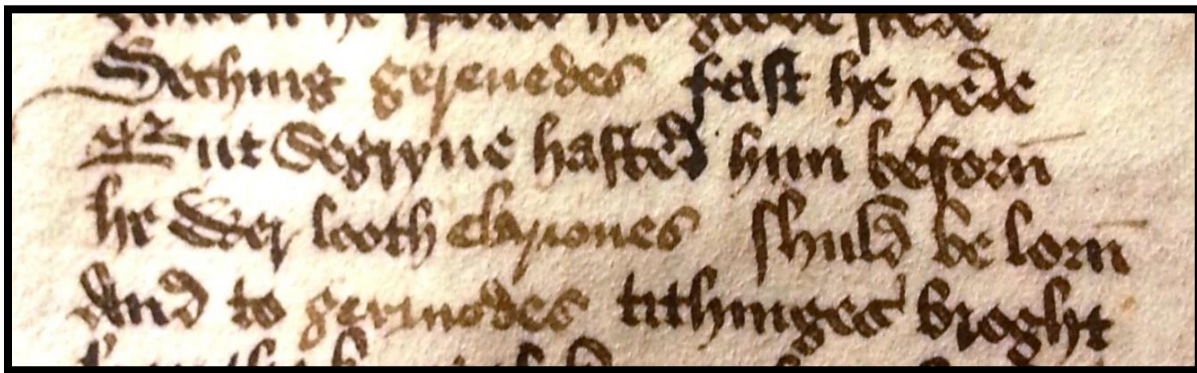 he his goode stede
Seching gerenedes fast he yede
But Segryne hasted him beforn
he wer looth clariones shuld be lorn
And to gerinodes tithinges broght